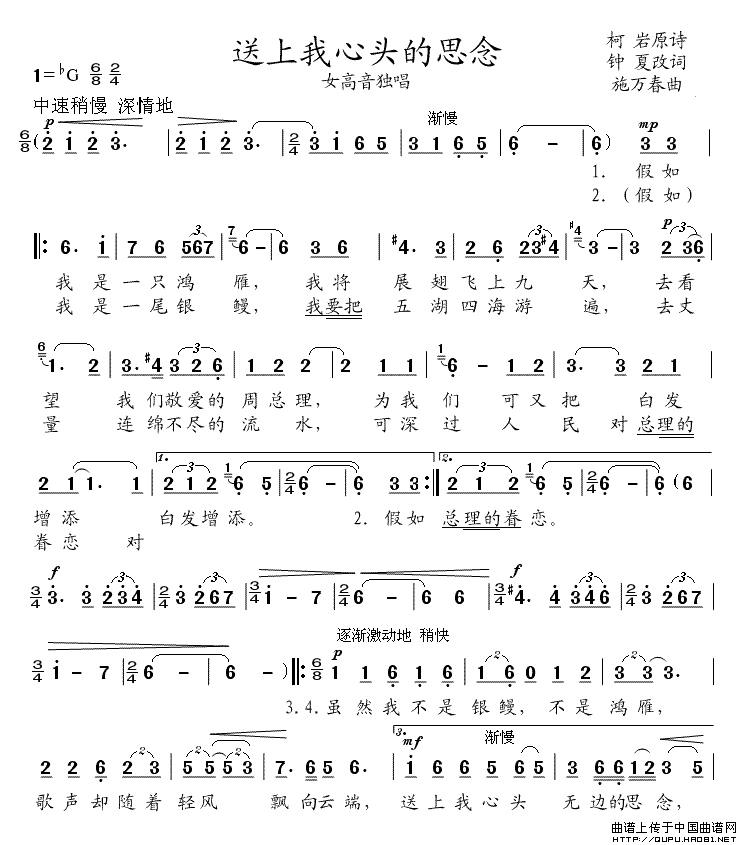 送上我心头的思念
女高音独唱
柯 岩原诗
钟 夏改词
施万春曲
1=♭G 6/8 2/4
中速稍慢 深情地
渐慢
1. 假如
2.（假如）
我 是 一 只 鸿 雁， 我 将 展 翅 飞 上 九 天， 去 看
我 是 一 尾 银 鳗， 我要把 五 湖 四 海 游 遍， 去 丈
望 我 们 敬 爱 的 周 总 理， 为 我 们 可 又 把 白 发
量 连 绵 不 尽 的 流 水， 可 深 过 人 民 对 总理的
增 添 白 发 增 添。 2. 假 如 总 理 的 眷 恋。
眷 恋 对
逐渐激动地 稍快
3.4. 虽 然 我 不 是 银 鳗， 不 是 鸿 雁，
歌 声 却 随 着 轻 风 飘 向 云 端， 送 上 我 心 头 无 边 的 思 念，
渐慢
曲谱上传于中国曲谱网
HTTP://QUPU.HAO81.NET